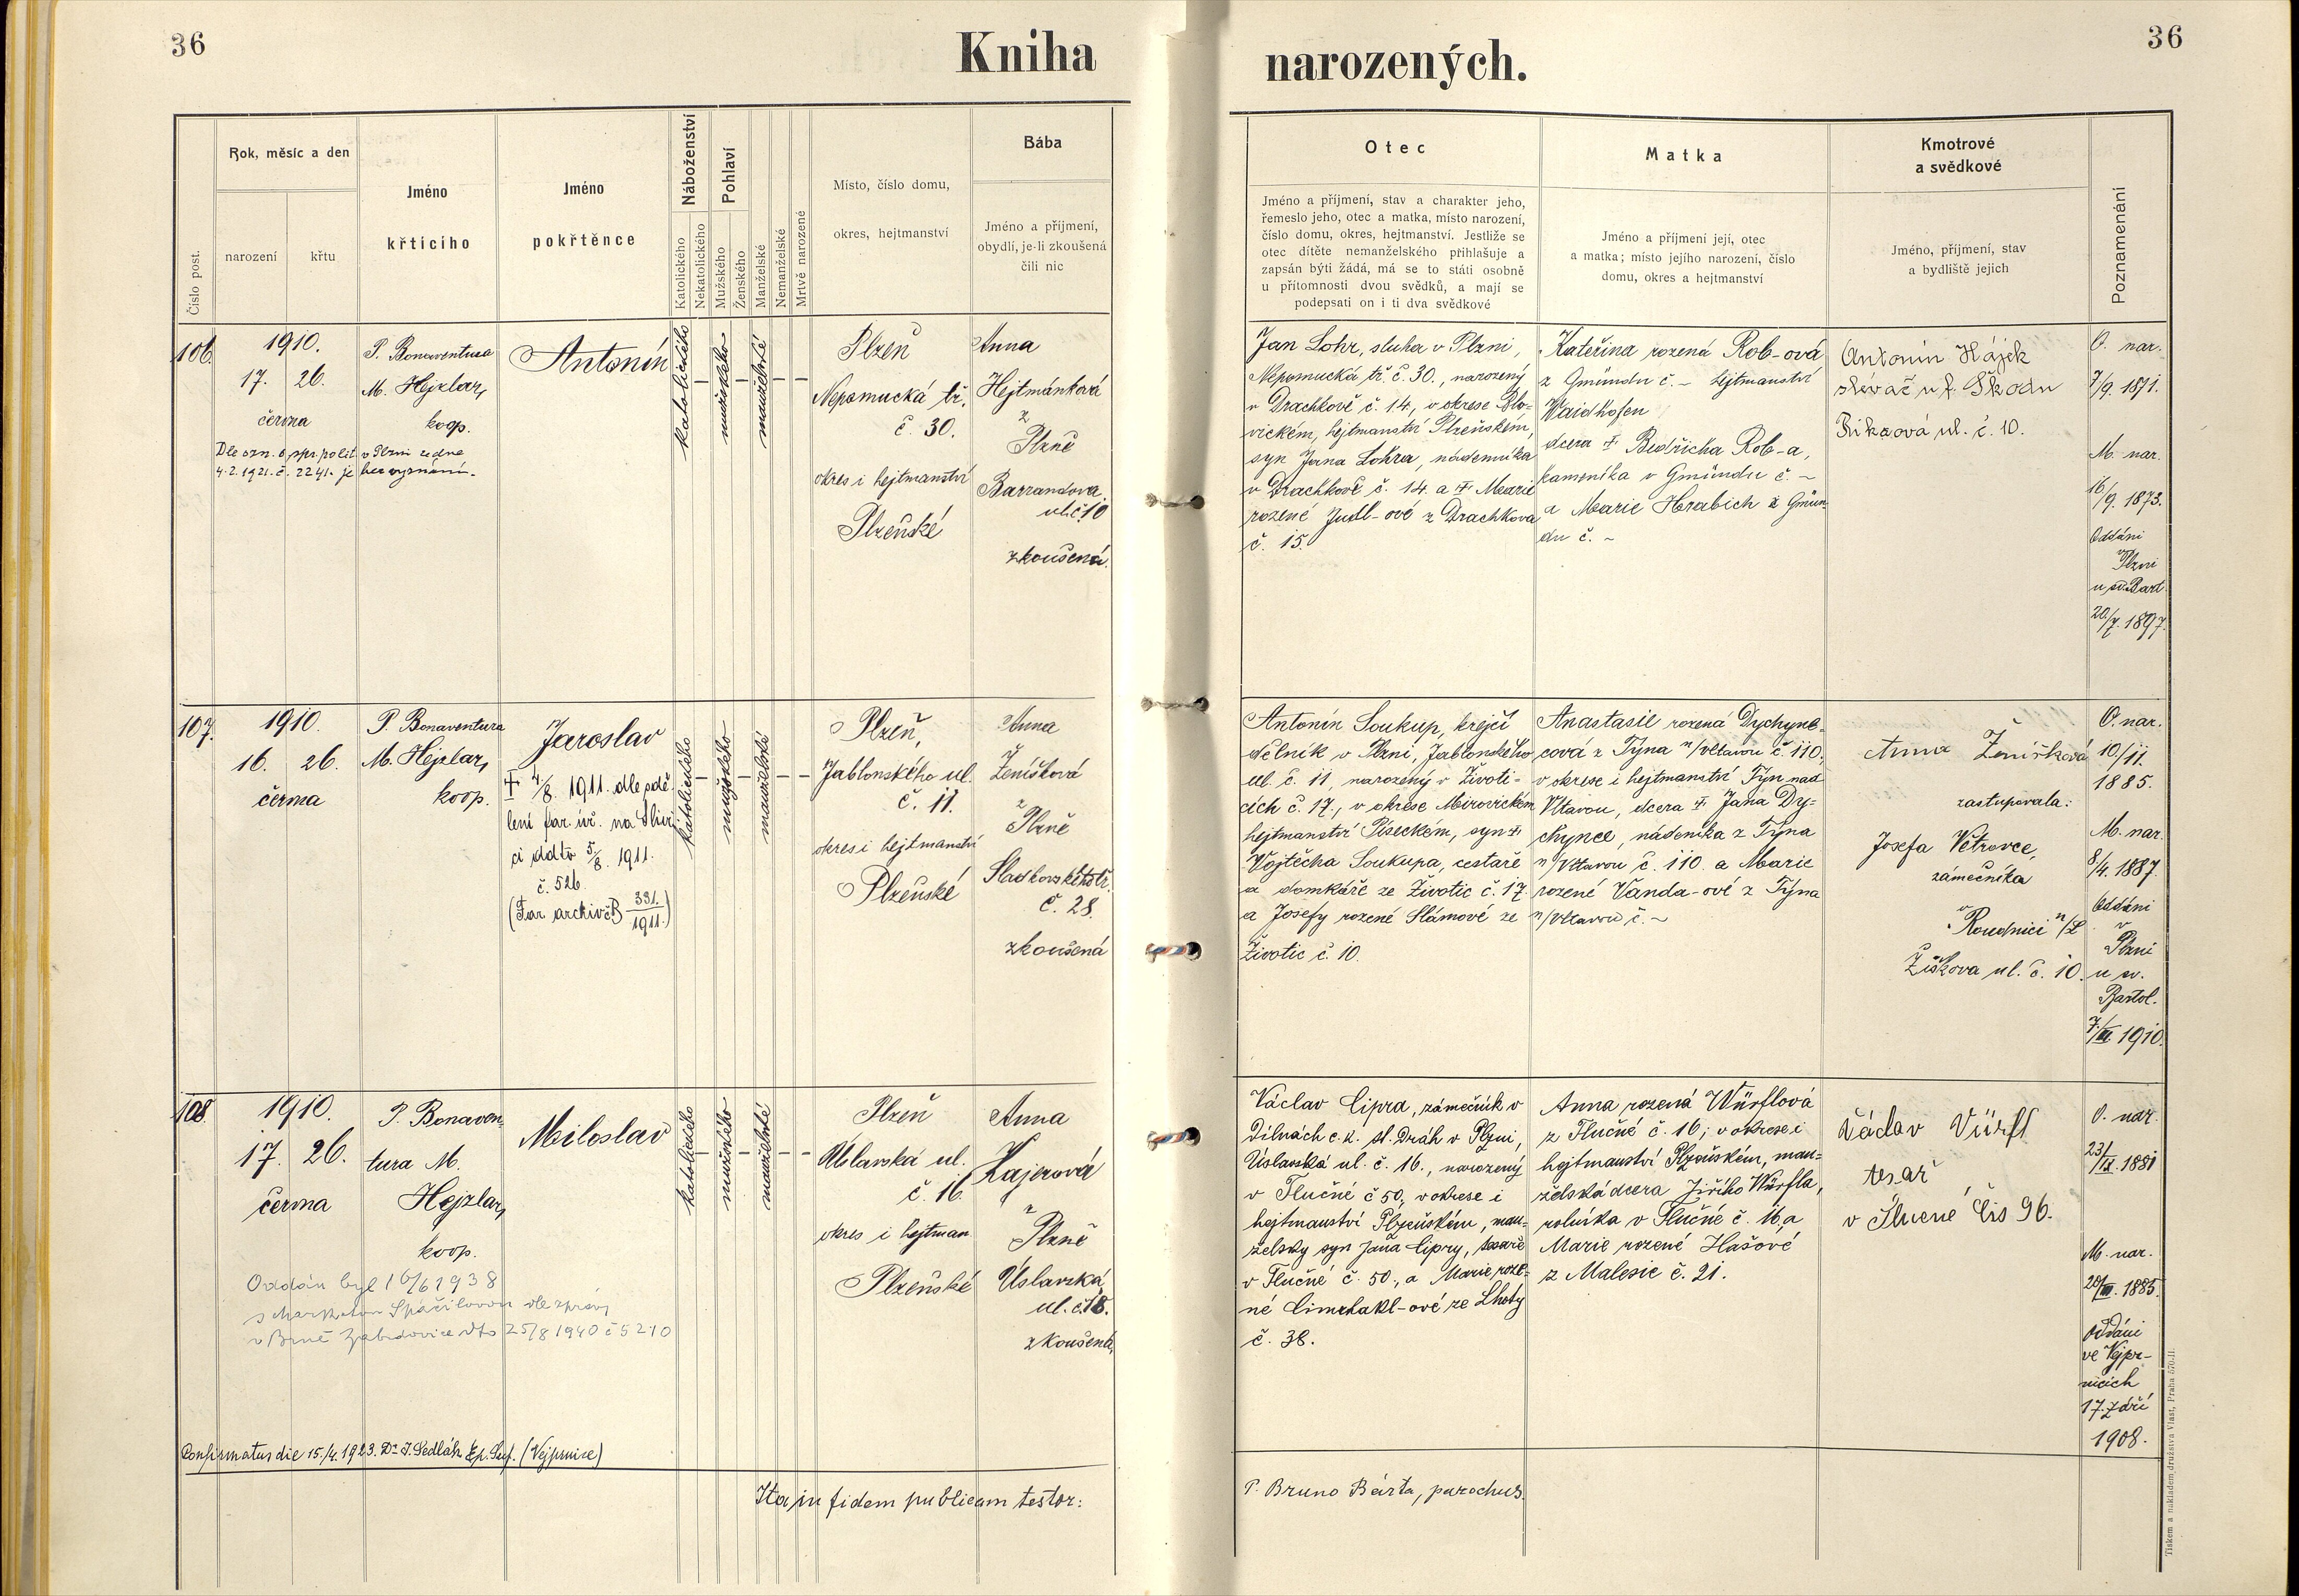 36
Kniha
narozených.
36
Číslo post.
Rok, měsíc a den
narození
křtu
Jméno
křticího
Jméno
pokřtěnce
Náboženství
Katolického
Nekatolického
Pohlaví
Mužského
Ženského
Manželské
Nemanželské
Mrtvě narozené
Místo, číslo domu,
okres, hejtmanství
Bába
Jméno a příjmení,
obydlí, je-li zkoušená
čili nic
Otec
Jméno a příjmení, stav a charakter jeho,
řemeslo jeho, otec a matka, místo narození,
číslo domu, okres, hejtmanství. Jestliže se
otec dítěte nemanželského přihlašuje a
zapsán býti žádá, má se to státi osobně
u přítomnosti dvou svědků, a mají se
podepsati on i ti dva svědkové
Matka
Jméno a příjmení její, otec
a matka; místo jejího narození, číslo
domu, okres a hejtmanství
Kmotrové
a svědkové
Jméno, příjmení, stav
a bydliště jejich
Poznamenání
106
1910.
17. 26.
června
Dle ozn. o. spr. polit v Plzni ze dne
4.2.1921. č. 2241. je bez vyznání.
P. Bonaventura
M. Hejzlar,
koop.
Antonín
katolického
mužského
manželské
Plzeň
Nepomucká tř.
č. 30.
okres i hejtmanství
Plzeňské
Anna
Hejtmánková
z
Plzně
Barrandova
ul. č. 10
zkoušená.
Jan Lohr, sluha v Plzni,
Nepomucká tř. č. 30., narozený
v Drachkově č. 14., v okrese Blo-
vickém, hejtmanství Plzeňském,
syn Jana Lohra, nádeníka
v Drachkově č. 14. a † Marie
rozené Judl-ové z Drachkova
č. 15.
Kateřina rozená Rob-ová
z Gmündu č. – hejtmanství
Waidhofen
dcera † Bedřicha Rob-a,
kameníka v Gmündu č. ~
a Marie Hrabich z Gmün-
du č. ~
Antonín Hájek
slévač u f. Škodu
ul. č. 10.
O. nar.
7/9. 1871.
M. nar.
16/9. 1873.
Oddáni
v Plzni
u sv. Bart.
20/7. 1897.
107.
1910.
16. 26.
června
P. Bonaventura
M. Hejzlar,
koop.
Jaroslav
† 4/8. 1911. dle sdě-
lení far. úř. na Slivi-
ci ddto 5/8. 1911.
č. 526.
(Far archiv č B 331./1911.)
katolického
mužského
manželské
Plzeň,
Jablonského ul.
č. 11.
okres i hejtmanství
Plzeňské
Anna
Ženíšková
z
Plzně
Sladkovského tř.
č. 28.
zkoušená
Antonín Soukup, krejčí
dělník v Plzni, Jablonského
ul. č. 11, narozený v Životi-
cích č. 17., v okrese Mirovickém
hejtmanství Píseckém, syn †
Vojtěcha Soukupa, cestaře
a domkáře ze Životic č. 17
a Josefy rozené Slámové ze
Životic č. 10.
Anastasie rozená Dychyne-
cová z Týna n/Vltavou č. 110.
v okrese i hejtmanství Týn nad
Vltavou, dcera †. Jana Dy-
chynce, nádeníka z Týna
n/Vltavou č. 110. a Marie
rozené Vanda-ové z Týna
n/Vltavou č. ~
Anna Ženíšková
zastupovala:
Josefa Větrovce,
zámečníka
v Roudnici n/L
Žižkova ul. č. 10.
O. nar.
10/11.
1885.
M. nar.
8/4. 1887.
Oddáni
v
Plzni
u sv.
Bartol.
1910.
108.
1910.
17. 26.
června
P. Bonaven-
tura M.
Hejzlar,
koop.
Miloslav
Oddán byl 16/6 1938
s Marketou Spáčilovou dle zprávy
v Brně Zábrdovice dto 25/8 1940 č 5210
Confirmatus die 15./4.1923. Dr. J. Sedlák Ep. Suf. (Vejprnice)
katolického
mužského
manželské
Plzeň
Úslavská ul.
č. 16.
okres i hejtman.
Plzeňské
Anna
Kajerová
z
Plzně
Úslavská
ul. č. 18.
zkoušená,
Václav Cipra, zámečník v
dílnách c. k. st. Dráh v Plzni,
Úslavská ul. č. 16., narozený
v Tlučné č 50., v okrese i
hejtmanství Plzeňském, man-
želský syn Jana Cipry, tesaře
v Tlučné č. 50., a Marie roze-
né ze Lhoty
č. 38.
Anna rozená Würflová
z Tlučné č. 16; v okrese i
hejtmanství Plzeňském, man-
želská dcera Jiřího Würfla,
rolníka v Tlučné č. 16, a
Marie rozené Hašové
z Malesic č. 21.
Václav Vürfl
tesař
v Tlucné čis 96.
O. nar.
23/IX. 1881
M. nar.
1885.
Oddáni
ve Vejpr-
nicích
17. září
1908.
Ita in fidem publicam testor:
P. Bruno Bárta, parochus.
Tiskem a nakladem družstva Vlast, Praha 570-II.